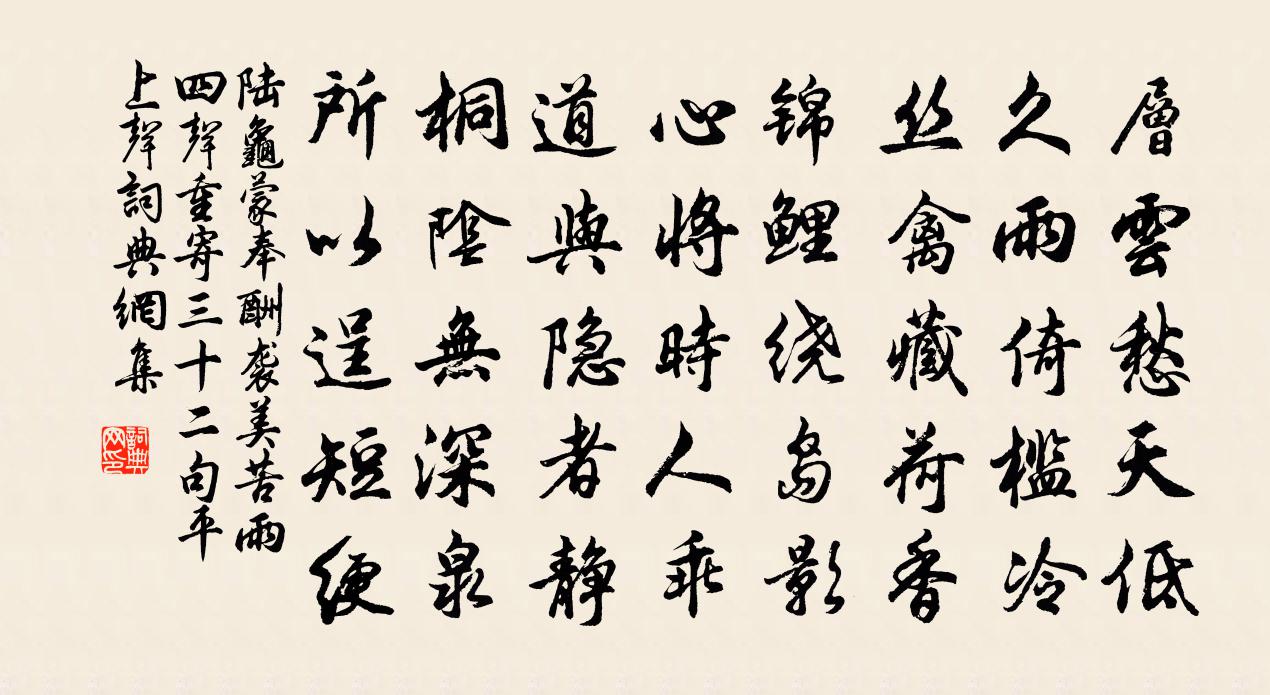 層雲愁天低
久雨倚檻冷
丝禽藏荷香
锦鲤绕岛影
心將時人乖
道與隐者静
桐陰無深泉
所以逞短綆
陆龜蒙奉酬袭美苦雨
四聲重寄三十二句平
上聲詞典網集
詞典网印